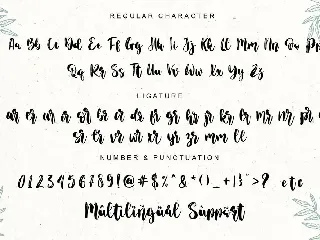 REGULAR CHARACTER
Aa Bb Cc Dd Ee Ff Gg Hh Ii Jj Kk Ll Mm Nn Oo Pp
Qq Rr Ss Tt Uu Vv Ww Xx Yy Zz
LIGATURE
ar er ir or ar br cr dr fr gr hr jr kr lr mr nr pr
sr tr vr wr xr yr zr mm ll
NUMBER & PUNCTUATION
0123456789!@#$%^&*()_+|}">? etc
Mültilingüàl Süppört